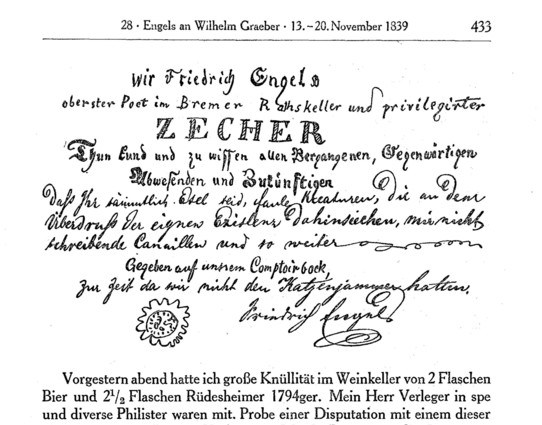 28 · Engels an Wilhelm Graeber · 13. – 20. November 1839 433
Wir Friedrich Engels
oberster Poet im Bremer Rathskeller und privilegirter
ZECHER
Thun kund und zu wissen allen Vergangenen, Gegenwärtigen
Abwesenden und Zukünftigen
Daß Ihr sämmtlich Esel seid, faule Kreaturen, die an dem
Überdruß der eignen Existenz dahinsiechen, mir nicht
schreibende Canaillen und so weiter
Gegeben auf unsrem Comptoirbock,
zur Zeit da wir nicht den Katzenjammer hatten.
Friedrich Engels
Vorgestern abend hatte ich große Knüllität im Weinkeller von 2 Flaschen
Bier und 2 1/2 Flaschen Rüdesheimer 1794ger. Mein Herr Verleger in spe
und diverse Philister waren mit. Probe einer Disputation mit einem dieser